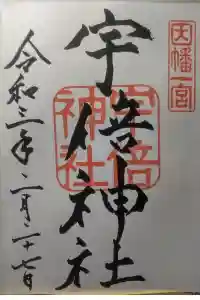 因幡一宮
宇倍神社
宇倍神社
令和三年二月二十七日